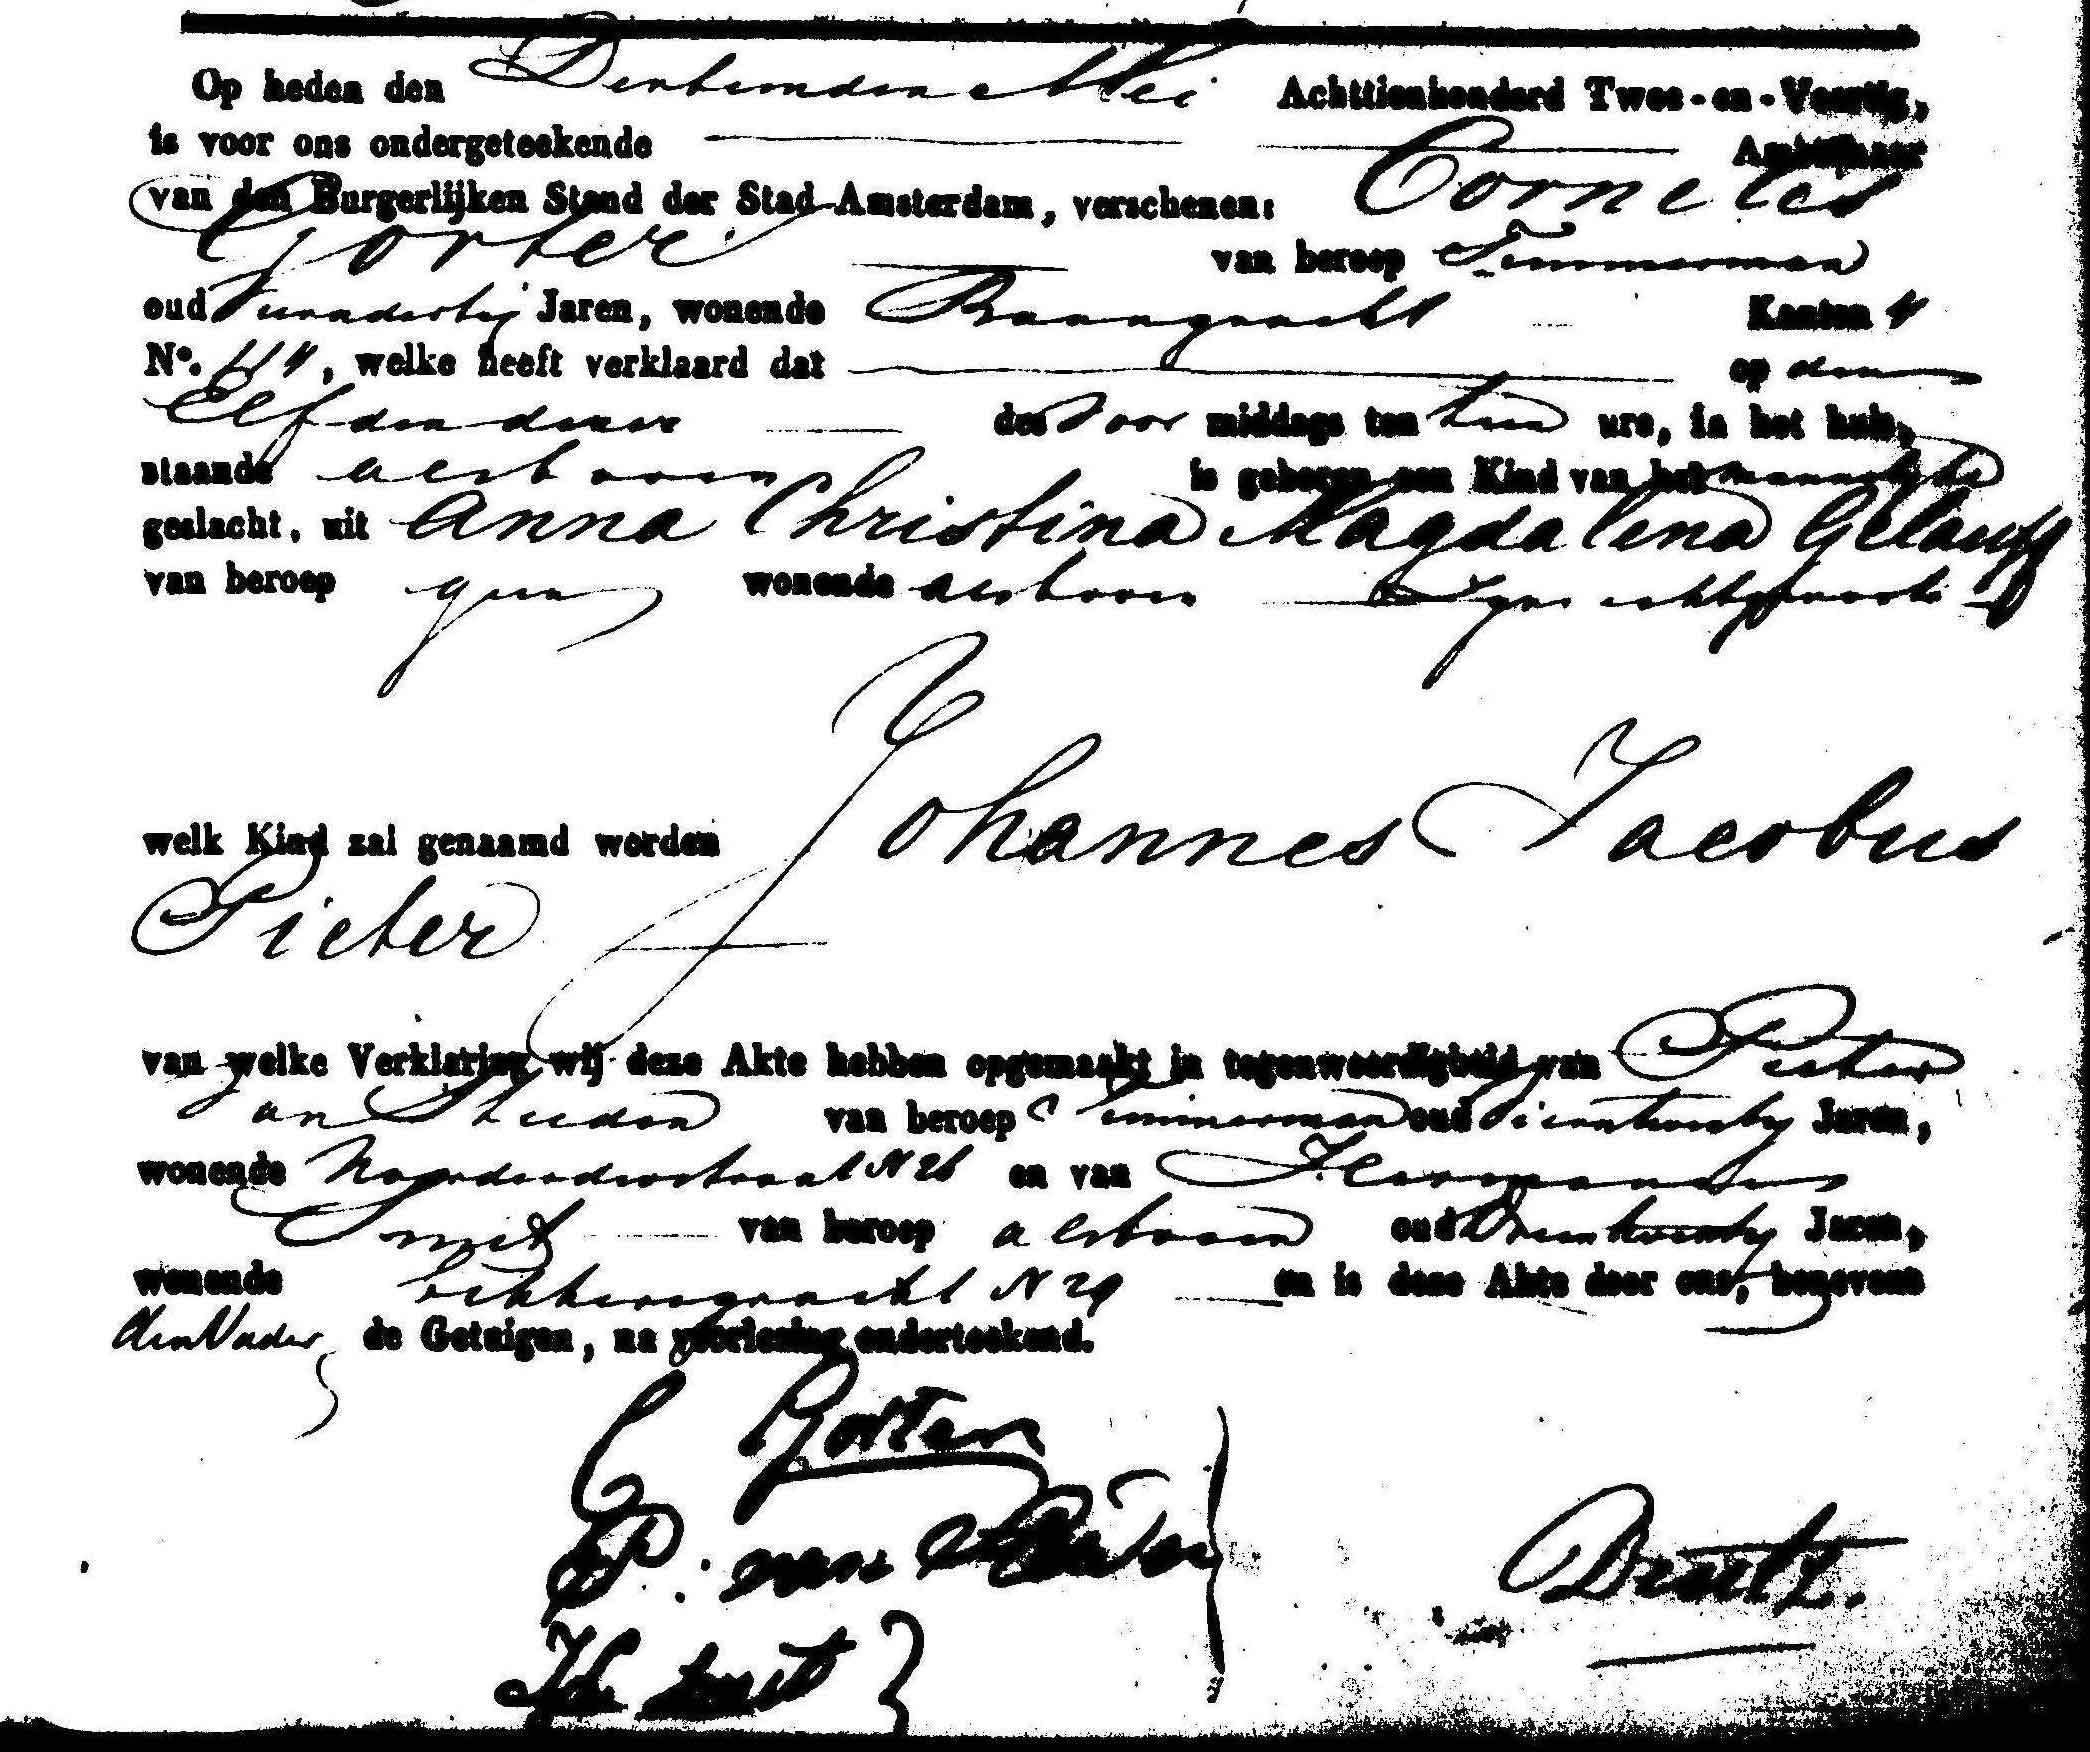 Op heden den Dertienden Mei Achttienhonderd Twee-en-Veertig,
is voor ons ondergeteekende Ambtenaar
van den Burgerlijken Stand der Stad Amsterdam, verschenen: Cornelis
Gorter van beroep Timmerman
oud Jaren, wonende Baangracht Kanton 4
No. 114, welke heeft verklaard dat op den
Elfden dezer des voor middags ten tien ure, in het huis,
staande als boven is geboren een Kind van het mannelijke
geslacht, uit Anna Christina Magdalena Gelauff
van beroep geen wonende als boven Zijne echtgenoote
welk Kind zal genaamd worden Johannes Jacobus
Pieter
van welke Verklaring wij deze Akte hebben opgemaakt in tegenwoordigheid van Pieter
van beroep Timmerman oud Jaren,
wonende Noorderdwarsstraat N 26 en van Hermanus
Smit van beroep als boven oud Drieentwintig Jaren,
wonende Lekkeregracht N 29 en is deze Akte door ons, benevens
den Vader de Getuigen, na voorlezing onderteekend.
C Gorter
P. van